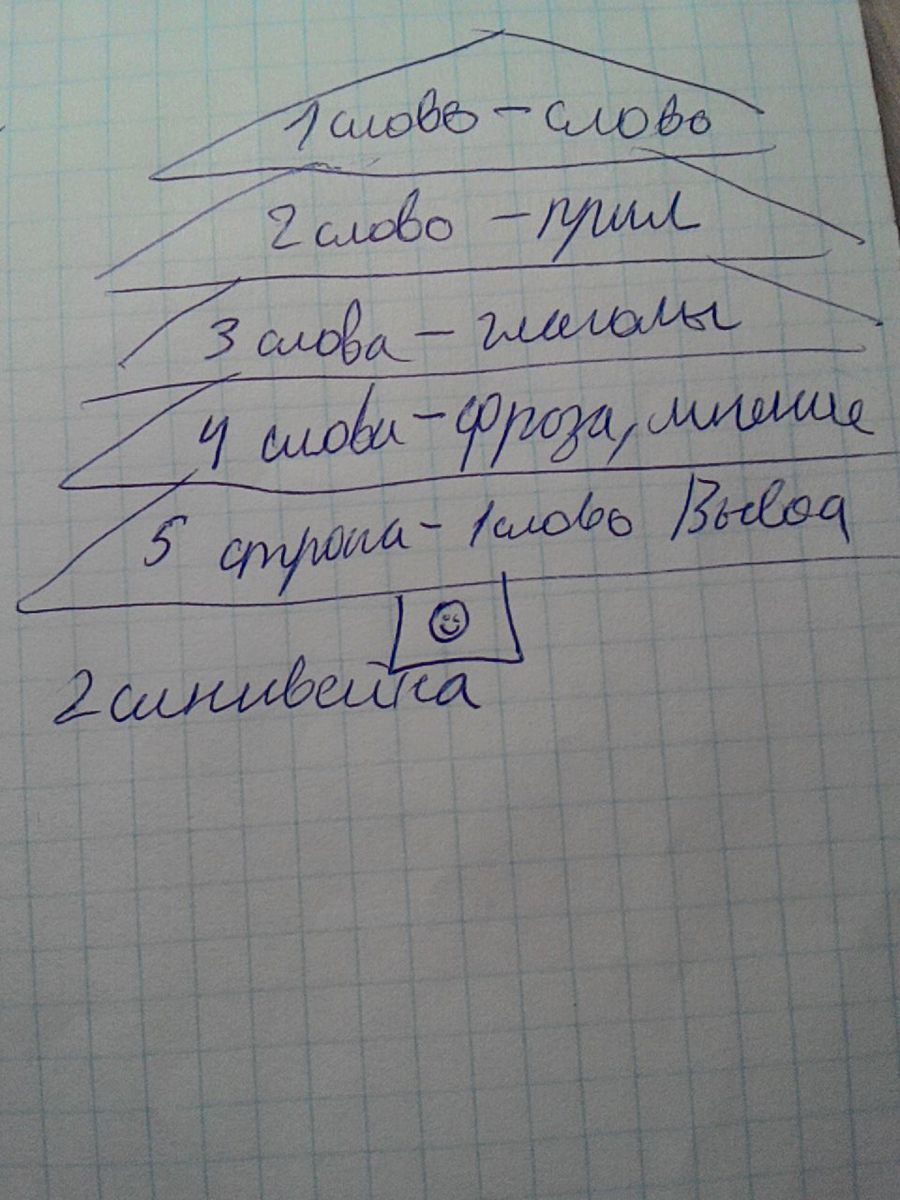 1 слово - слово
2 слово - прил
3 слова - глаголы
4 слова - фроза, мнение
5 строка - 1 слово Вывод
2 синквейна